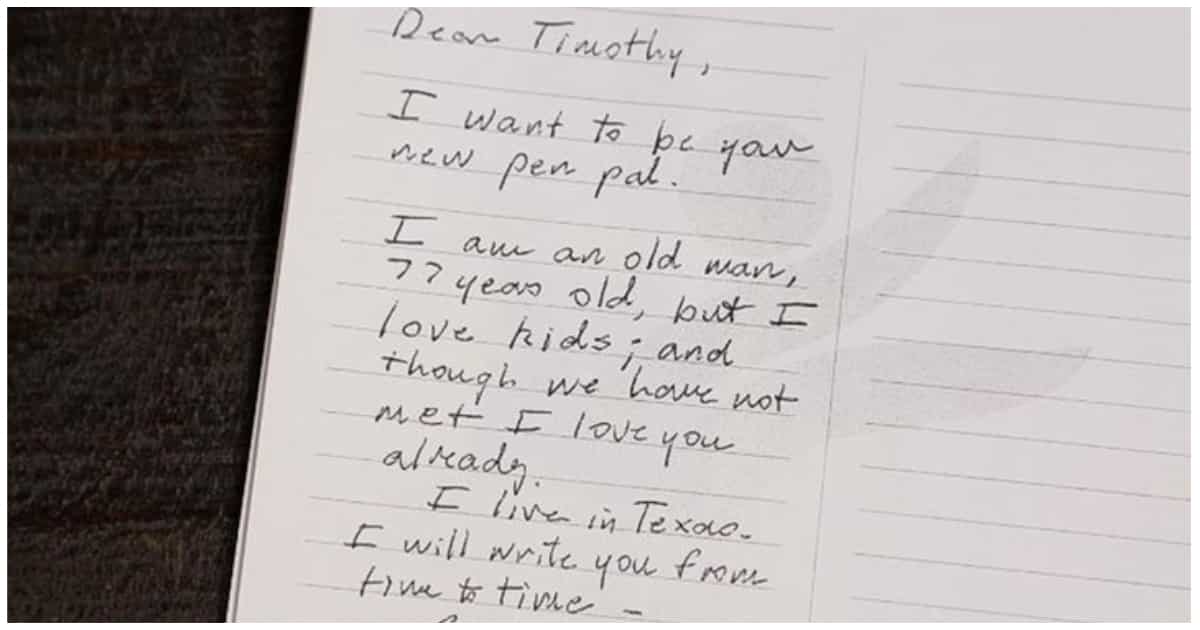 Dear Timothy,
I want to be your
new pen pal.
I am an old man,
77 years old, but I
love kids; and
though we have not
met I love you
already.
I live in Texas-
I will write you from
time to time -